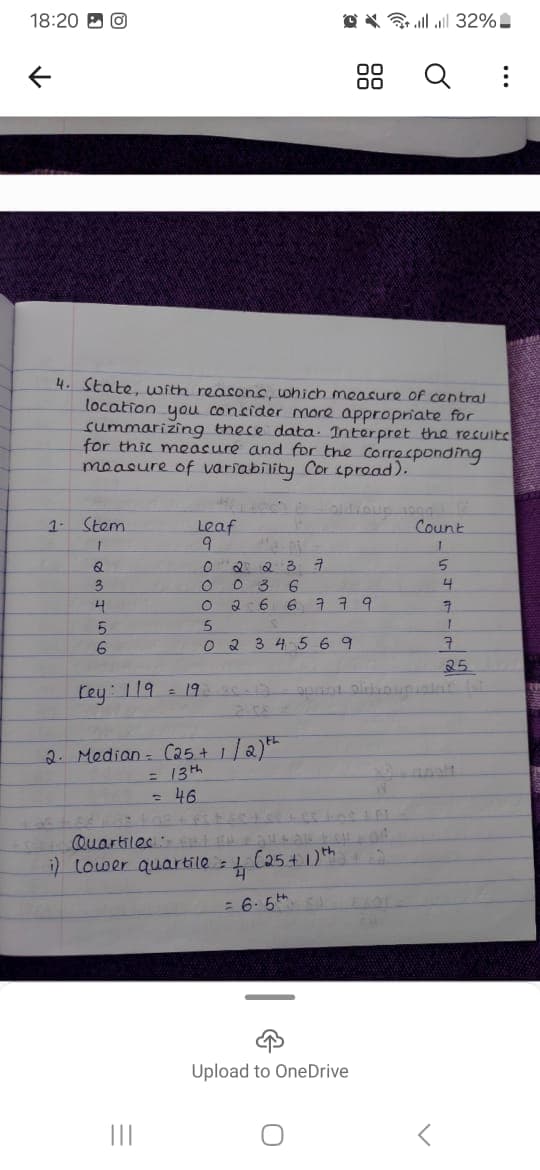 18:20
32%
4. State, with reasons, which measure of central
location you consider more appropriate for
summarizing these data. Interpret the results
for this measure and for the corresponding
measure of variability (or spread).
1- Stem Leaf Count
1 9 1
2 0 2 2 3 7 5
3 0 0 3 6 4
4 0 2 6 6 7 7 9 7
5 5 1
6 0 2 3 4 5 6 9 7
25
Key: 1|9 = 19
2. Median = (25 + 1/2)th
= 13th
= 46
Quartiles:
i) Lower quartile = 1/4 (25+1)th
= 6.5th
Upload to OneDrive